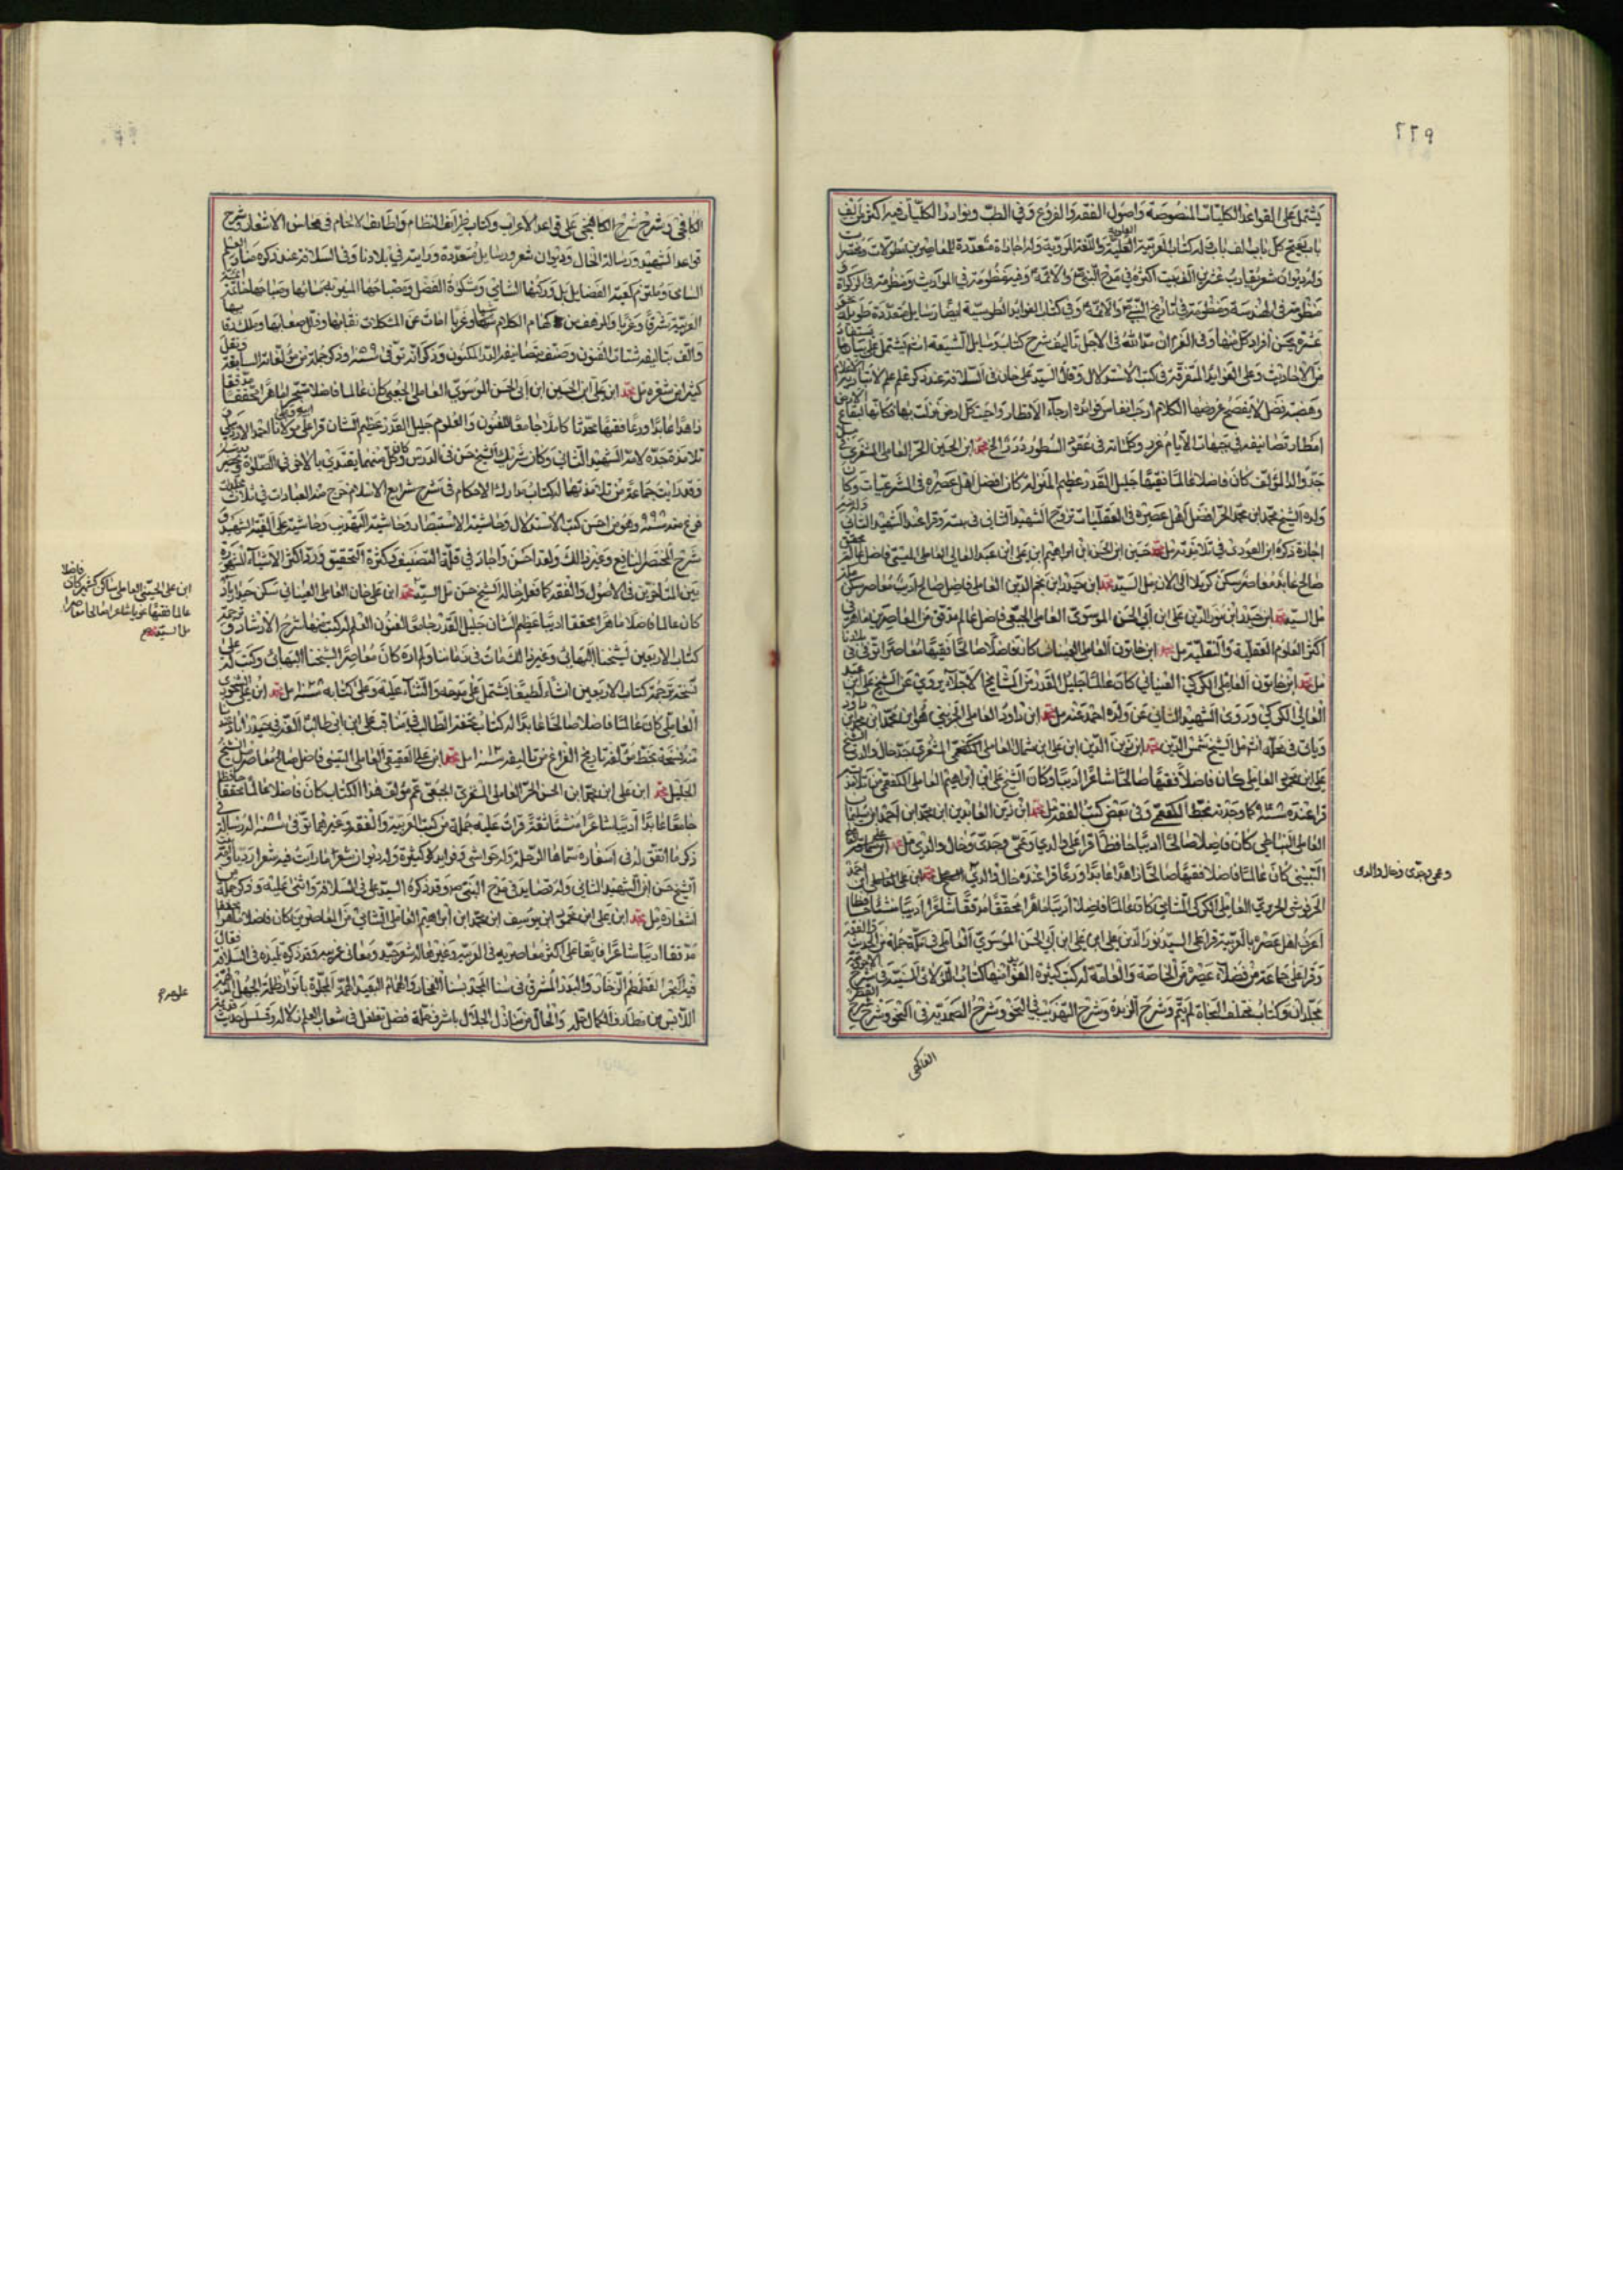 ٢٢٩
يشتمل على القواعد الكليات المنصوصة واصول الفقه والفروع وفي الطب ونوادر الكليات فيه اكثر من الف
باب يفتح كل باب الف باب وله كتاب العربية العلوية واللغة المروية وله اجازات متعددة للمعاصرين مطولات ومختصرات
وله ديوان شعر يقارب عشرين الف بيت اكثره في مدح النبي ص والائمة ع وفيه منظومة في المواريث ومنظومة في الزكاة و
منظومة في الهندسة ومنظومة في تاريخ النبي ص والائمة ع وفي كتاب الفوايد الطوسية ايضا رسايل متعددة طويلة نحو
عشرة يحسن افراد كل منها وفي العزم ان شاء الله في الاجل تاليف شرح كتاب وسايل الشيعة انتهى يشتمل على بيان ما يستفاد
من الاحاديث وعلى الفوايد المتفرقة في كتب الاستدلال وقال السيد علي خان في السلافة عند ذكره علم علم لا تباريه الاعلام
وهضبة فضل لا يفصح عن وصفها الكلام ارجت انفاس فوائده ارجاء الاقطار واحيت كل ارض نزلت بها فكانها لبقاع الارض
امطار تصانيفه في جبهات الايام غرر وكلماته في عقود السطور درر الخ محمد ابن الحسين الحر العاملي المشغري
جد والد المؤلف كان فاضلا عالما فقيها جليل القدر عظيم المنزلة كان افضل اهل عصره في الشرعيات وكان
ولده الشيخ محمد ابن محمد الحر افضل اهل عصره في العقليات تزوج الشهيد الثاني بنته وقرا عند الشهيد الثاني وله منه
اجازة ذكره ابن العودي في تلامذته مل محمد حسين ابن الحسن ابن ابراهيم ابن علي ابن عبد العالي العاملي الميسي فاضل عالم محقق
صالح عابد معاصر سكن كربلا الى الان مل السيد محمد ابن حيدر ابن نجم الدين العاملي فاضل صالح اديب معاصر سكن
مل السيد محمد ابن حيدر ابن نور الدين علي ابن ابي الحسن الموسوي العاملي الجبعي فاضل عالم مدقق من المعاصرين ماهر في
اكثر العلوم العقلية والنقلية مل محمد ابن خاتون العاملي العيناثي كان فاضلا صالحا فقيها معاصرا توفي في بلادنا
مل محمد ابن خاتون العاملي الكركي العيناثي كان عالما جليل القدر من المشايخ الاجلاء يروي عن الشيخ علي ابن عبد
العالي الكركي وروى الشهيد الثاني عن ولده احمد عنه مل محمد ابن داود العاملي الجزيني هو ابن محمد ابن محمد ابن داود
وياتي في محله انتهى مل الشيخ شمس الدين محمد ابن زين الدين ابن علي ابن شمال العاملي الكفعمي المشغري جد خال والدي الشيخ
علي ابن محمود العاملي كان فاضلا فقيها صالحا شاعرا اديبا وكان الشيخ علي ابن ابراهيم العاملي الكفعمي من تلامذته
قرا عنده كما وجدته بخط الكفعمي وفي بعض كتب الفقه مل محمد ابن زين العابدين ابن محمد ابن احمد ابن سليمان
العاملي النباطي كان فاضلا صالحا اديبا حافظا قرا على والدي وعمي وجدي وخال والدي مل محمد
التبنيني كان عالما فاضلا فقيها صالحا زاهدا عابدا ورعا قرا عنده خال والدي محمد ابن علي العاملي ابن احمد
الحرفوشي الحريري العاملي الكركي الشامي كان عالما فاضلا اديبا ماهرا محققا مدققا شاعرا اديبا منشئا حافظا
اعرف اهل عصره بالعربية قرا على السيد نور الدين علي ابن علي ابن ابي الحسن الموسوي العاملي في مكة جملة من كتب الحديث والفقه
وقرا على جماعة من فضلاء عصره من الخاصة والعامة له كتب كثيرة الفوائد منها كتاب اللآلئ السنية في شرح الاجرومية
مجلدان وكتاب مختلف النحاة لم يتم وشرح الزبدة وشرح التهذيب في النحو وشرح الصمدية في النحو وشرح شرح القطر
الفاكهي
وعمي وجدي وخال والدي
الفاكهي وشرح شرح الكافيجي على قواعد الاعراب وكتاب طرايف النظام ولطايف الانسجام في محاسن الاشعار وشرح
قواعد الشهيد ورسالة الخال وديوان شعر ورسايل متعددة ورايته في بلادنا وفي السلافة عند ذكره منار العلم
السامي وملتزم كعبة الفضايل بل وركنها الشامي ومشكوة الفضل ومصباحها المنير به مساؤها وصباحها خاتمة ائمة
العربية شرقا وغربا والمرهف من كهام الكلام شبا وغربا اماط عن المشكلات نقابها وذلل صعابها وملك رقابها
والف بتاليفه شتات الفنون وصنف بتصانيفه الدر المكنون وذكر انه توفي في وذكر جملة من مؤلفاته السابقة ونقل
كثيرا من شعره مل محمد ابن علي ابن الحسين ابن ابي الحسن الموسوي العاملي الجبعي كان عالما فاضلا متبحرا ماهرا محققا مدققا
زاهدا عابدا ورعا فقيها محدثا كاملا جامعا للفنون والعلوم جليل القدر عظيم الشان قرا على ابيه وعلى مولانا احمد الاردبيلي و
تلامذة جده لامه الشهيد الثاني وكان شريك الشيخ حسن في الدرس وكان كل منهما يقتدي بالاخر في الصلوة
وقد رايت جماعة من تلامذتهما له كتاب مدارك الاحكام في شرح شرايع الاسلام خرج منه العبادات في ثلاث مجلدات
فرغ منه سنة ٩٩٨ وهو من احسن كتب الاستدلال وحاشية الاستبصار وحاشية التهذيب وحاشية على الفية الشهيد و
شرح المختصر النافع وغير ذلك ولقد احسن واجاد في قلة التصنيف وكثرة التحقيق ورد اكثر الاشياء المشهورة
بين المتاخرين في الاصول والفقه كما فعله خاله الشيخ حسن مل السيد محمد ابن علي خان العاملي العيناثي سكن حيدراباد
كان عالما فاضلا ماهرا محققا اديبا عظيم الشان جليل القدر جامعا لفنون العلم له كتب منها شرح الارشاد وترجمة
كتاب الاربعين لشيخنا البهائي وغير ذلك مات في زماننا ولم اره كان معاصرا لشيخنا البهائي وكتب له على
نسخة ترجمة كتاب الاربعين انشاء لطيفا يشتمل على مدحه والثناء عليه وعلى كتابه مل محمد ابن علي الشحوري
العاملي كان عالما فاضلا صالحا عابدا له كتاب تحفة الطالب في مناقب علي ابن ابي طالب الفه في حيدراباد
عندنا منه نسخة بخط مؤلفه تاريخ الفراغ من تاليفه مل محمد ابن علي العقيقي العاملي التبنيني فاضل صالح معاصر مل الشيخ
الجليل محمد ابن علي ابن محمد ابن الحسن الحر العاملي المشغري الجبعي عم مؤلف هذا الكتاب كان فاضلا عالما محققا حافظا
جامعا عابدا اديبا شاعرا منشئا ثقة قرات عليه جملة من كتب العربية والفقه وغيرهما توفي له رسالة
ذكر ما اتفق له في اسفاره سماها الرحلة وله حواشي وفوايد كثيرة وله ديوان شعر
الشيخ حسن ابن الشهيد الثاني وله قصايد في مدح النبي ص وقد ذكره السيد علي في السلافة واثنى عليه وذكر جملة من
اشعاره مل محمد ابن علي ابن محمود ابن يوسف ابن محمد ابن ابراهيم العاملي الشامي من المعاصرين كان فاضلا ماهرا محققا
مدققا اديبا شاعرا فايقا على اكثر معاصريه في العربية وغيرها له شعر جيد ومعاني غريبة وقد ذكره تلميذه في السلافة فقال
فيه البحر الغطمطم الزخار والبدر المشرق في سماء المجد بسناء الفخار والهمام البعيد الهمة المجلوة بانواره ظلمة الجهل
اللابس من مطارف الكمال حلة والحال من منازل الجلال باشرف حلة فضل تغلغل في شعاب العلم زلاله وتسلسل حديث
ابن علي الحسيني العاملي ساكن كشمير كان فاضلا
عالما فقيها نحويا شاعرا صالحا معاصرا
مل السيد محمد